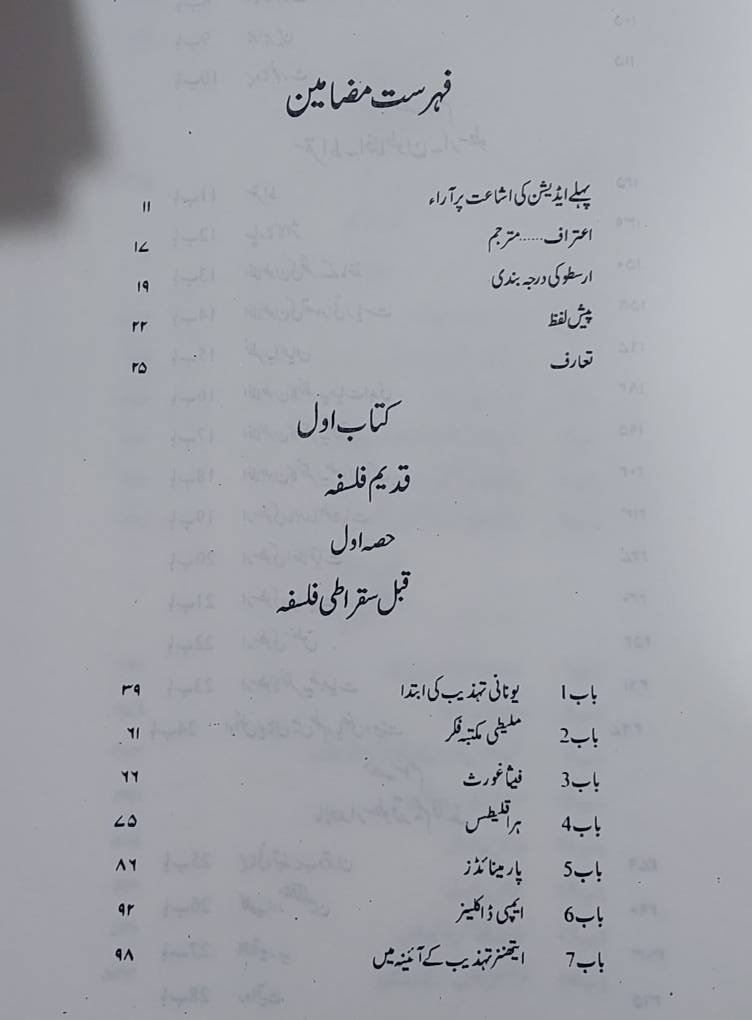 فہرست مضامین
پہلے ایڈیشن کی اشاعت پر آراء ۱۱
اعتراف......مترجم ۱۷
ارسطو کی درجہ بندی ۱۹
پیش لفظ ۲۲
تعارف ۲۵
کتاب اول
قدیم فلسفہ
حصہ اول
قبل سقراطی فلسفہ
باب 1 یونانی تہذیب کی ابتدا ۳۹
باب 2 ملیطی مکتبہ فکر ۶۱
باب 3 فیثا غورث ۶۶
باب 4 ہراقلیطس ۷۵
باب 5 پارمینائڈز ۸۶
باب 6 ایمپی ڈاکلیز ۹۲
باب 7 ایتھنز تہذیب کے آئینہ میں ۹۸